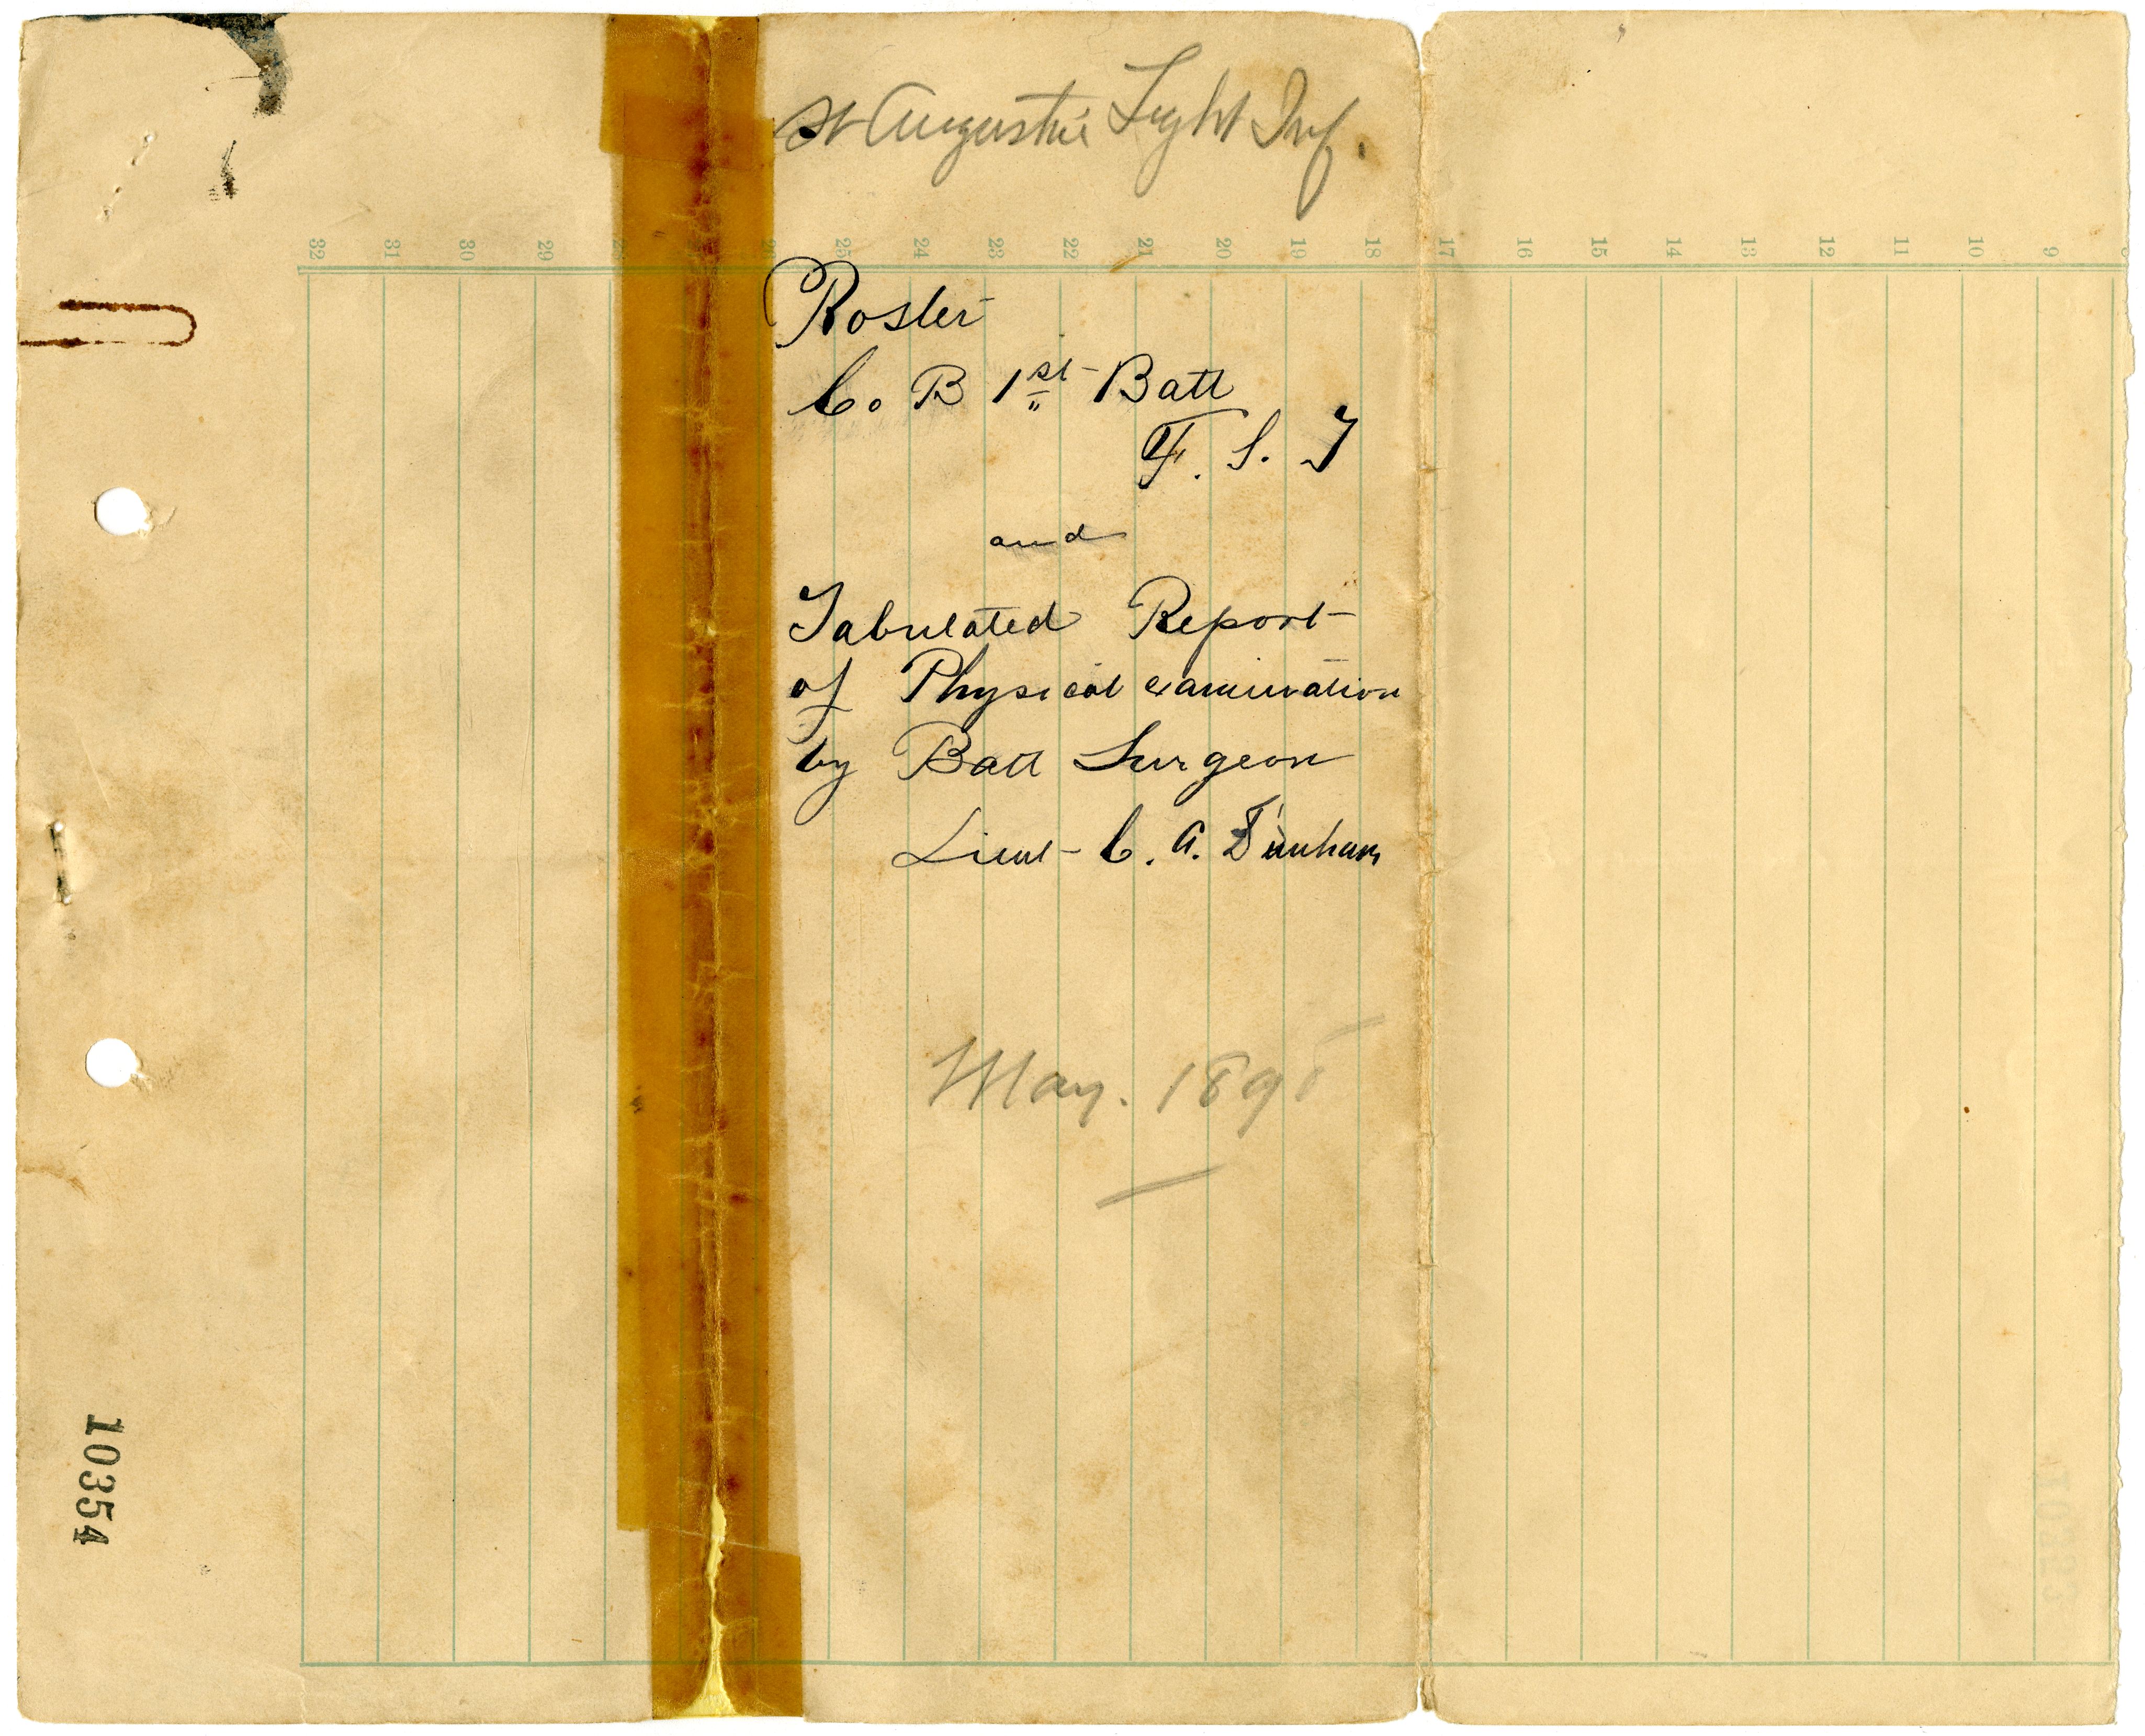 St Augustine Light Inf.
32 31 30 29 25 24 23 22 21 20 19 18 17 16 15 14 13 12 11 10 9
Roster
Co. B 1st Batt
F. S. T
and
Tabulated Report
of Physical examination
by Batt Surgeon
Lieut - C. A. Dunham
May. 1898
10354